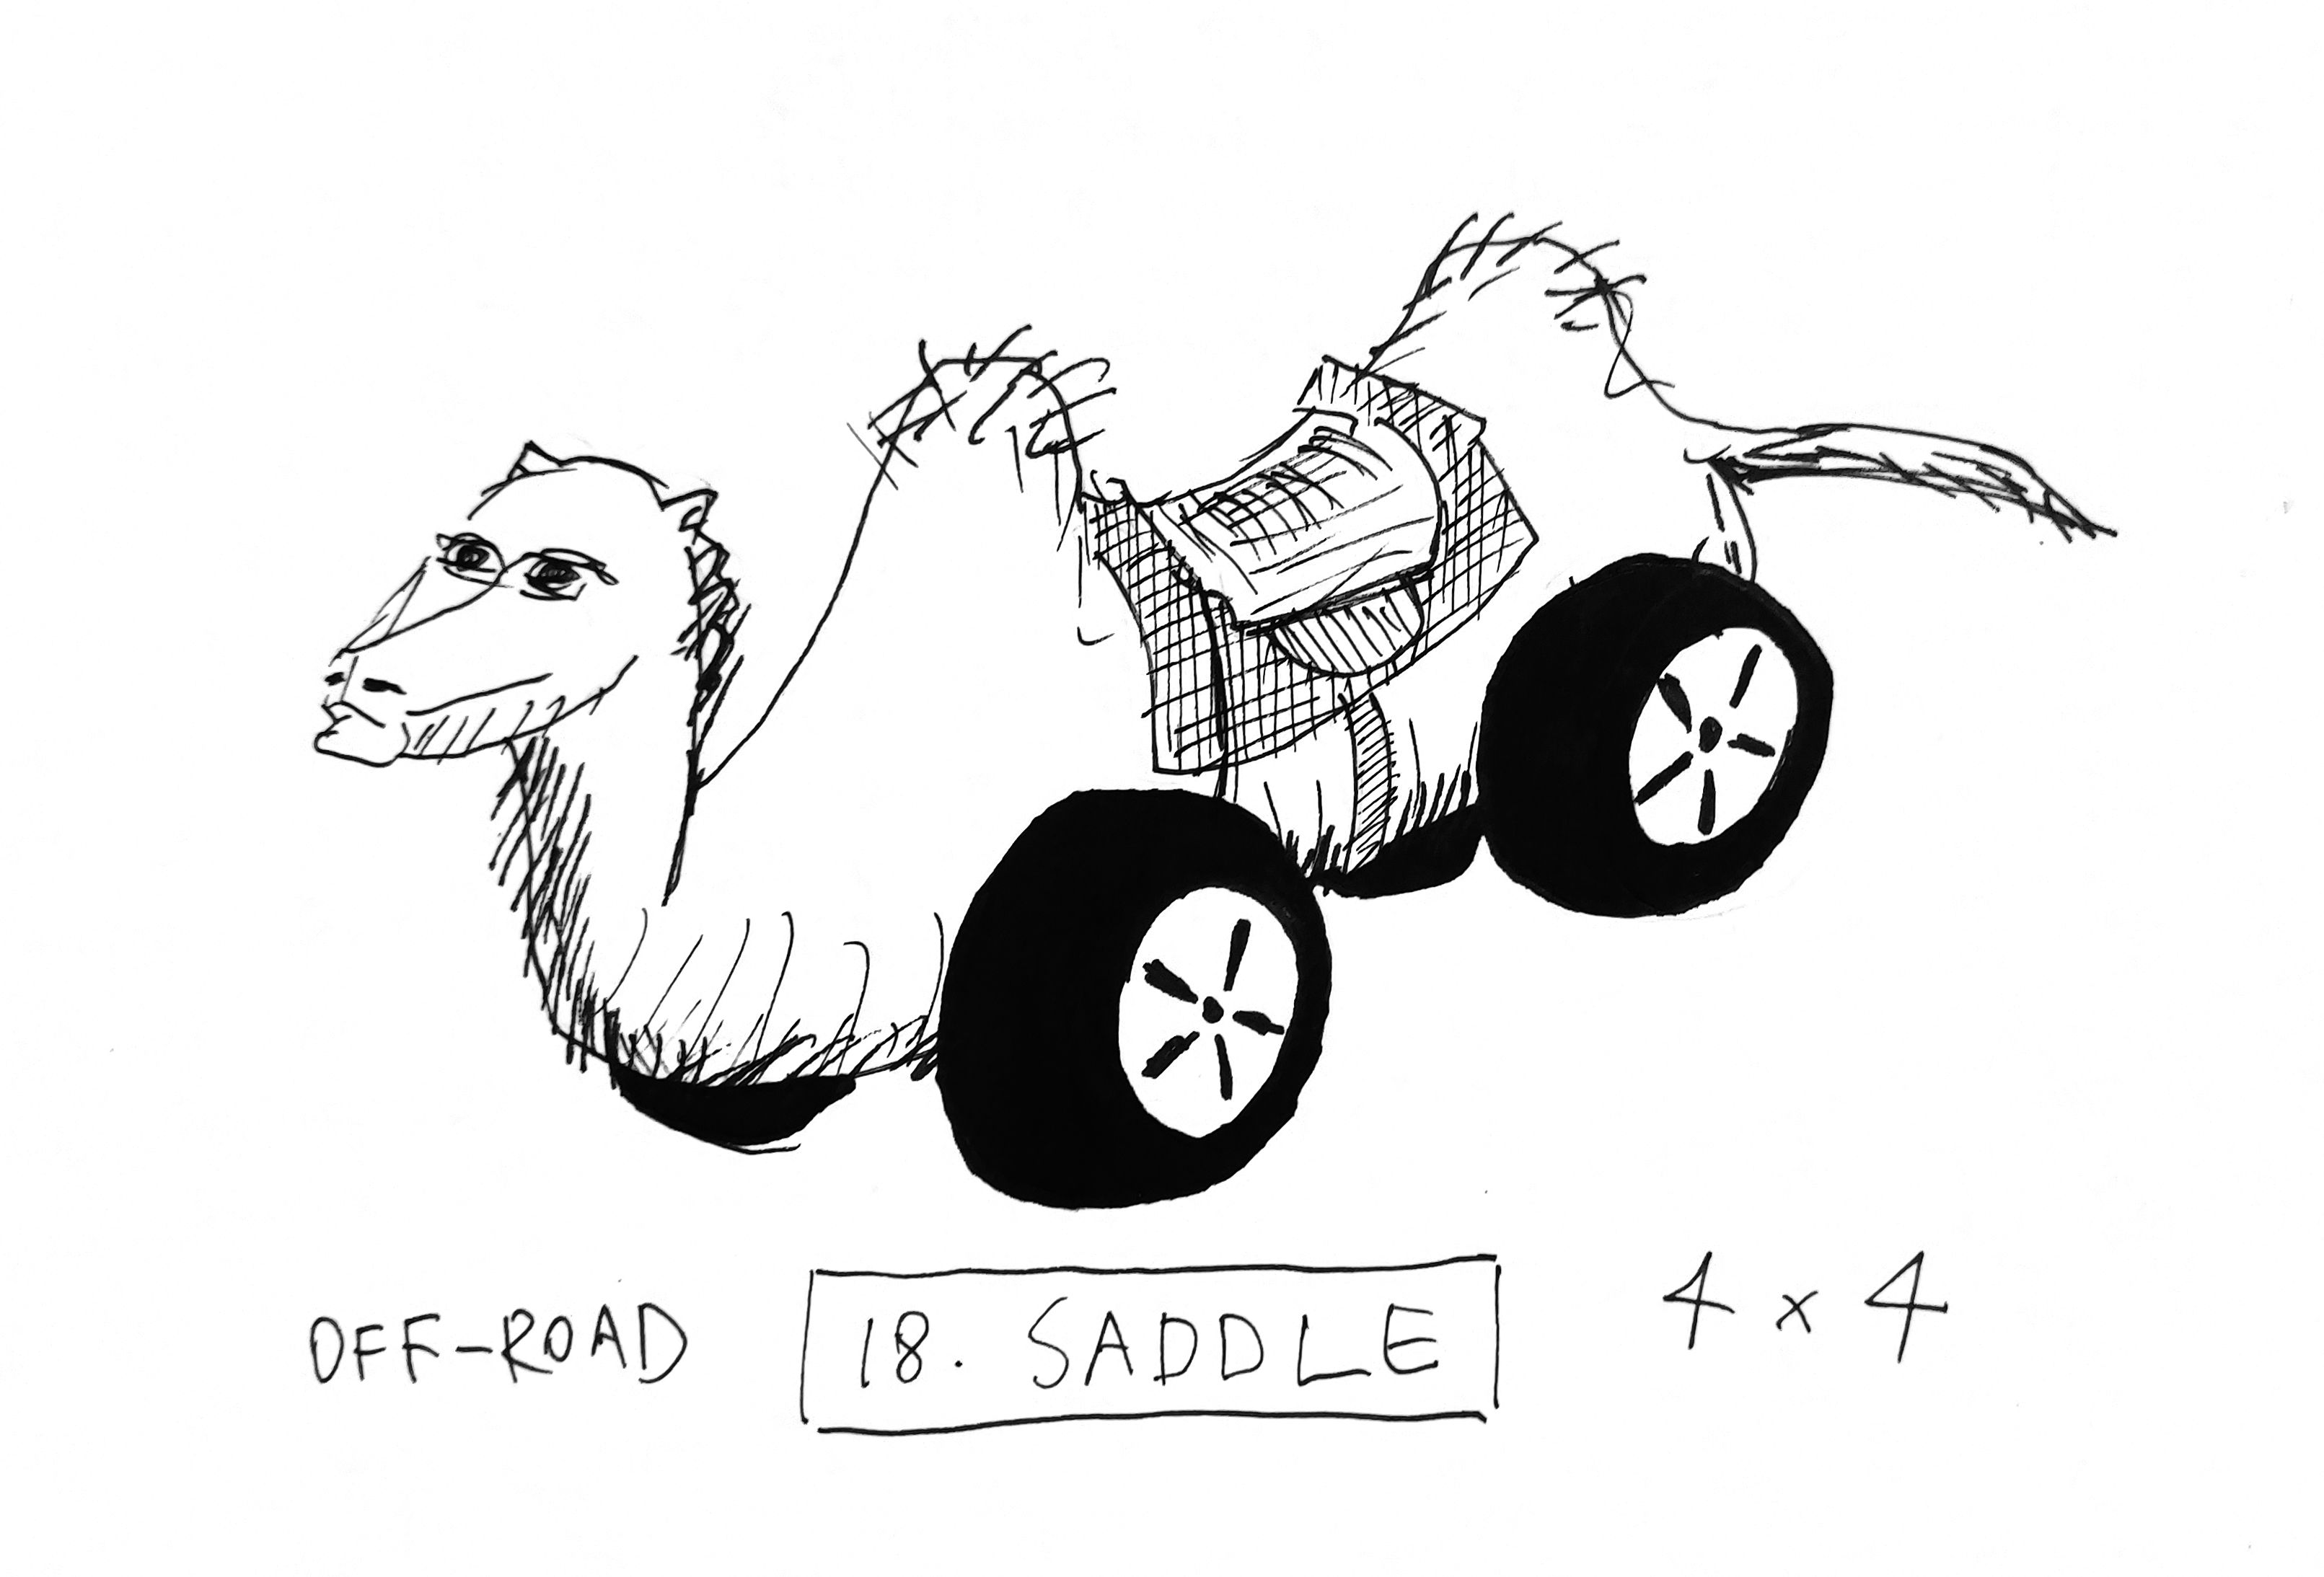 OFF-ROAD
18. SADDLE
4 x 4